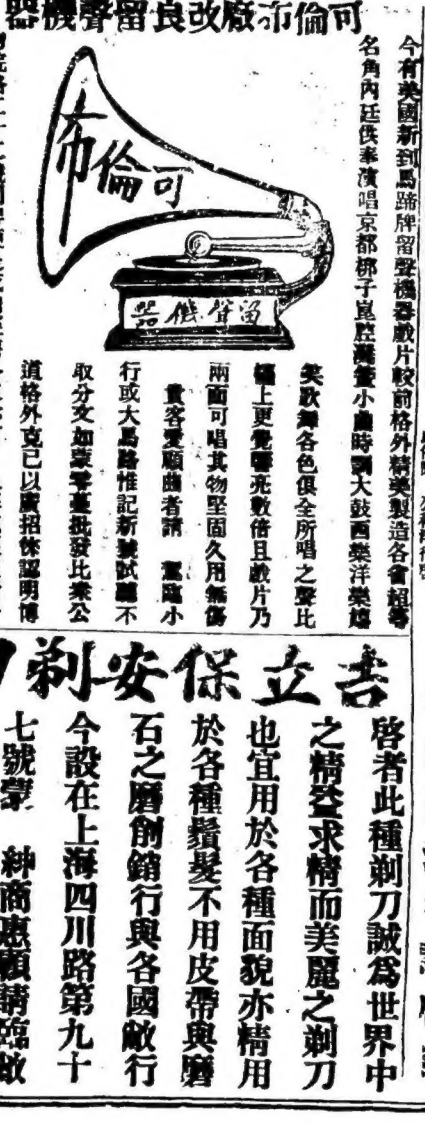 可倫布廠改良留聲機器
可倫布
留聲機器
今有美國新到馬蹄牌留聲機器戲片較前格外精美製造各省超等
名角內廷供奉演唱京都梆子崑腔灘簧小曲時調大鼓西樂洋樂嬉
笑歌舞各色俱全所唱之聲比
蠟上更覺響亮數倍且戲片乃
兩面可唱其物堅固久用無傷
貴客愛顧曲者請 駕臨小
行或大馬路惟記新號試聽不
取分文如蒙零躉批發比衆公
道格外克己以廣招徠認明博
吉立保安剃刀
啓者此種剃刀誠爲世界中
之精益求精而美麗之剃刀
也宜用於各種面貌亦精用
於各種鬚髮不用皮帶與磨
石之磨創銷行與各國敝行
今設在上海四川路第九十
七號蒙 紳商惠顧請臨敝